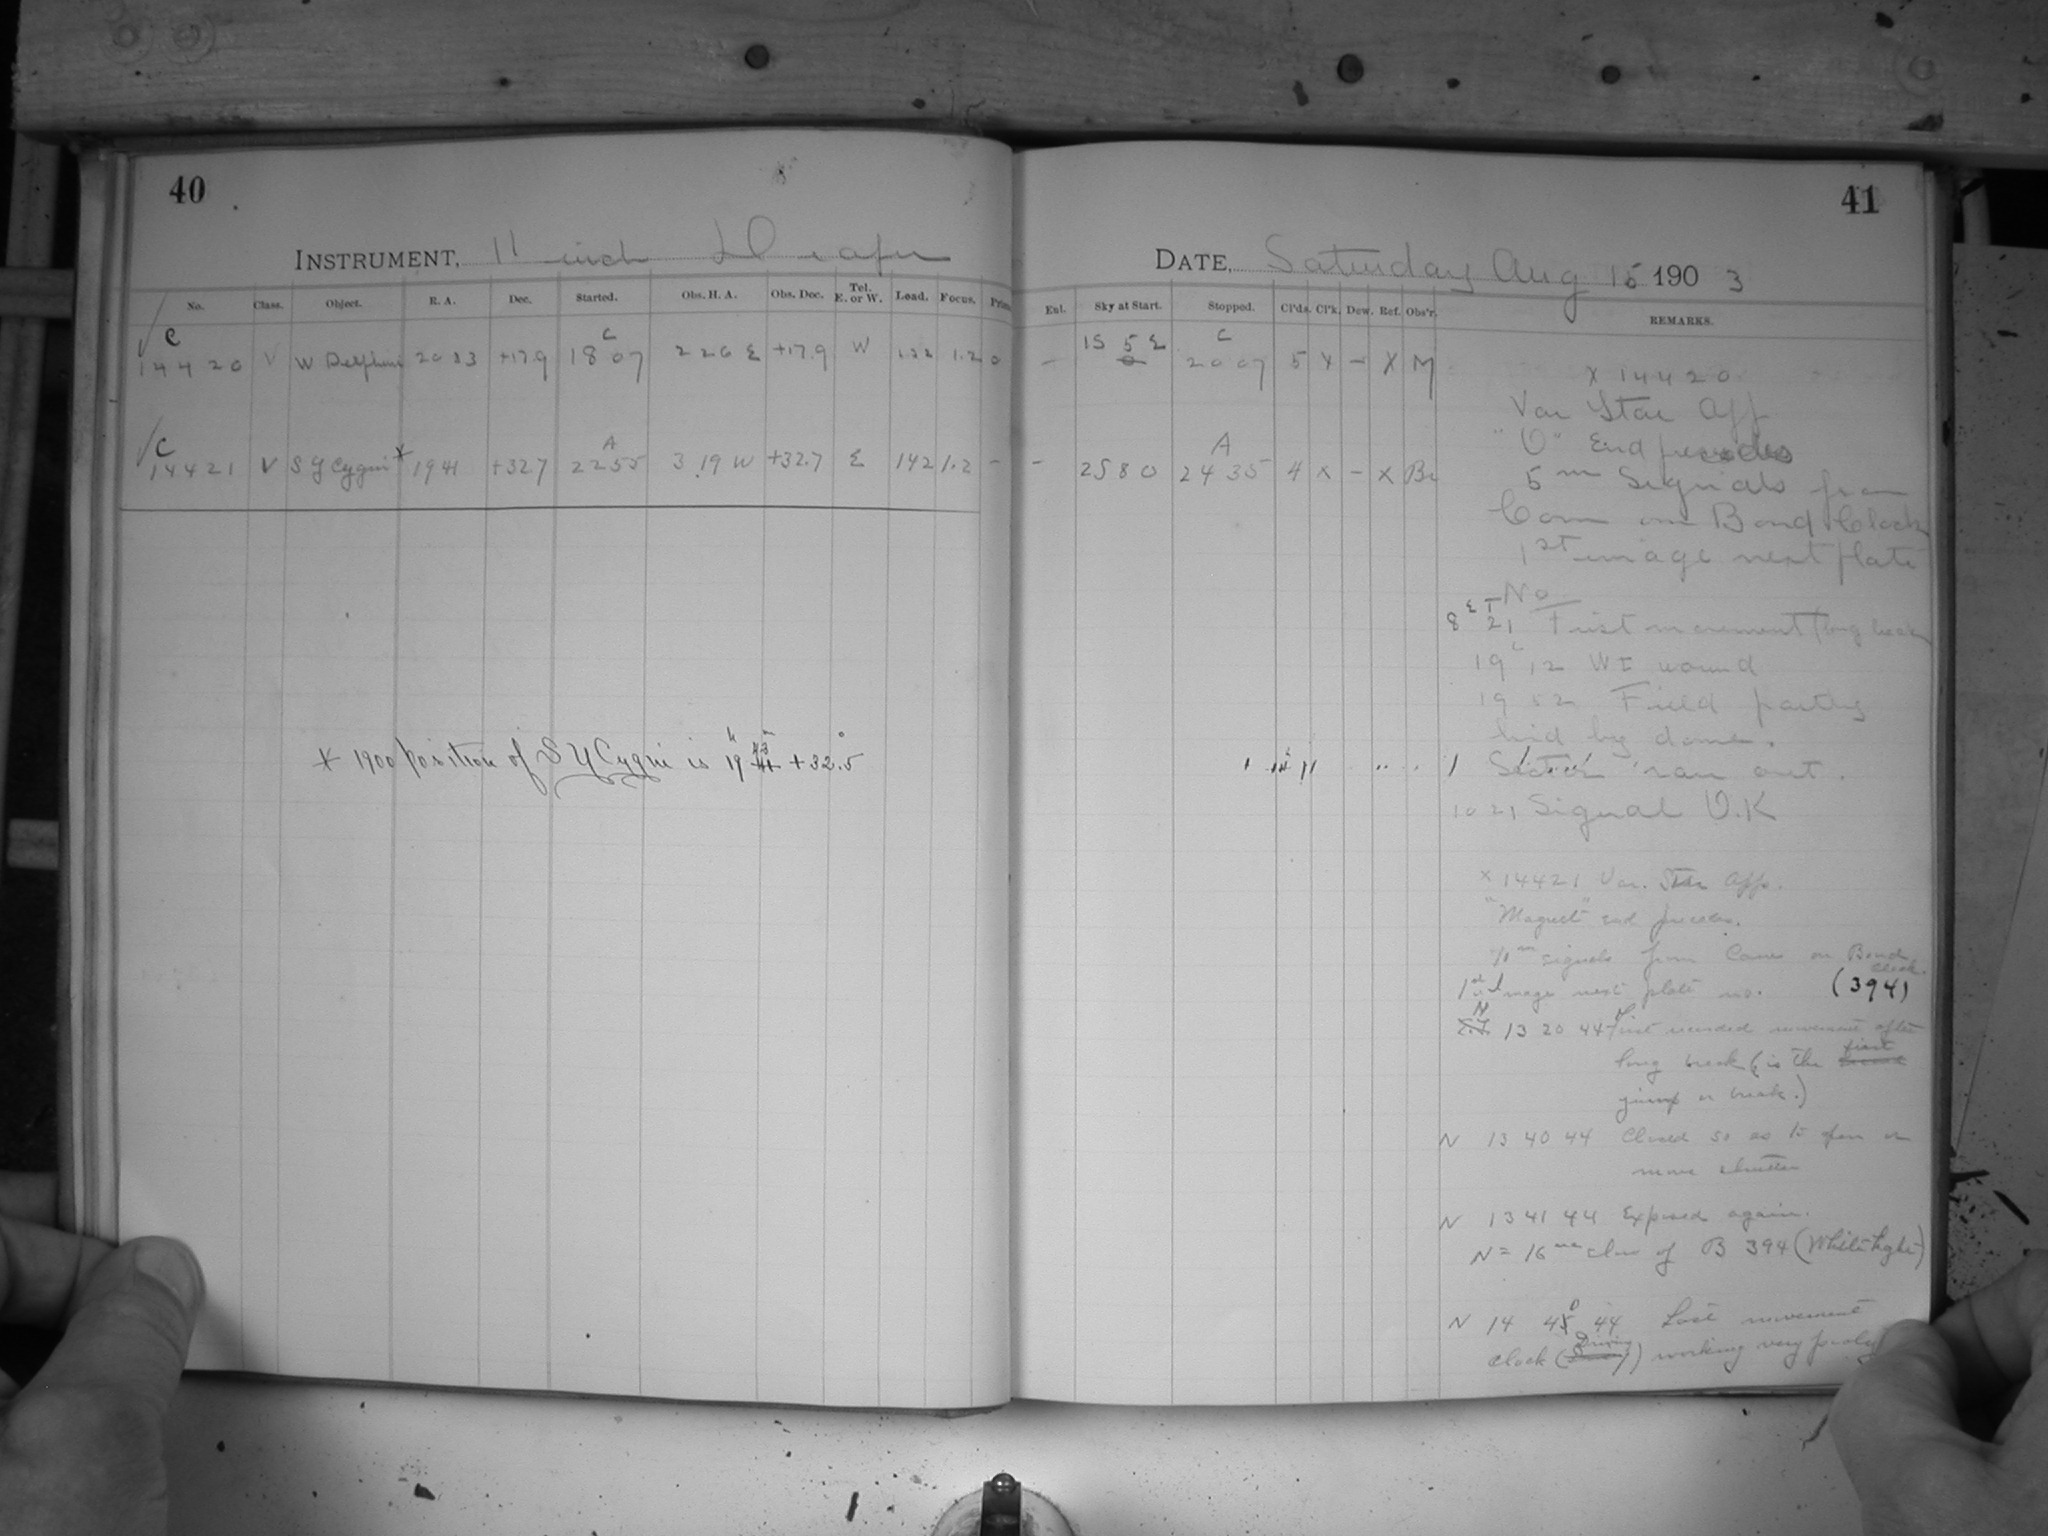 40
INSTRUMENT, 11 inch Draper
No. Class. Object. R. A. Dec. Started. Obs. H. A. Obs. Dec. Tel. E. or W. Load. Focus.
C C
14420 V W Delphini 2033 +17.9 18 07 2 26 E +17.9 W 122 1.2 0
C A
14421 V S Y Cygni * 1941 +32.7 22 55 3 19 W +32.7 E 142 1.2 -
* 1900 position of S Y Cygni is 19h 43m +32°.5
41
DATE, Saturday Aug 15 1903
Ent. Sky at Start. Stopped. Cl'ds. Cl'k. Dew. Ref. Obs'r. REMARKS.
C
- 15 5 E 20 07 5 X - X M
A
- 2580 24 35 4 X - X
X 14420
Var Star App
"O" End precedes
5m Signals from
Cam on Bond Clock
1st image next plate
No
8 ET 21 First movement (long break
19C 12 WI wound
19 52 Field partly
hid by dome.
ran out.
10 21 Signal O.K
X 14421 Var. Star App.
"Magnet" end precedes.
signals from Cam on Bond Clock.
1st image next plate no. (394)
N 13 20 44 First recorded movement after
long break (is the first
jump or break.)
N 13 40 44 Closed so as to open or
move shutter
N 13 41 44 Exposed again.
N = 16 of B 394 (White Light)
N 14 44 Last movement
clock (Driving) working very